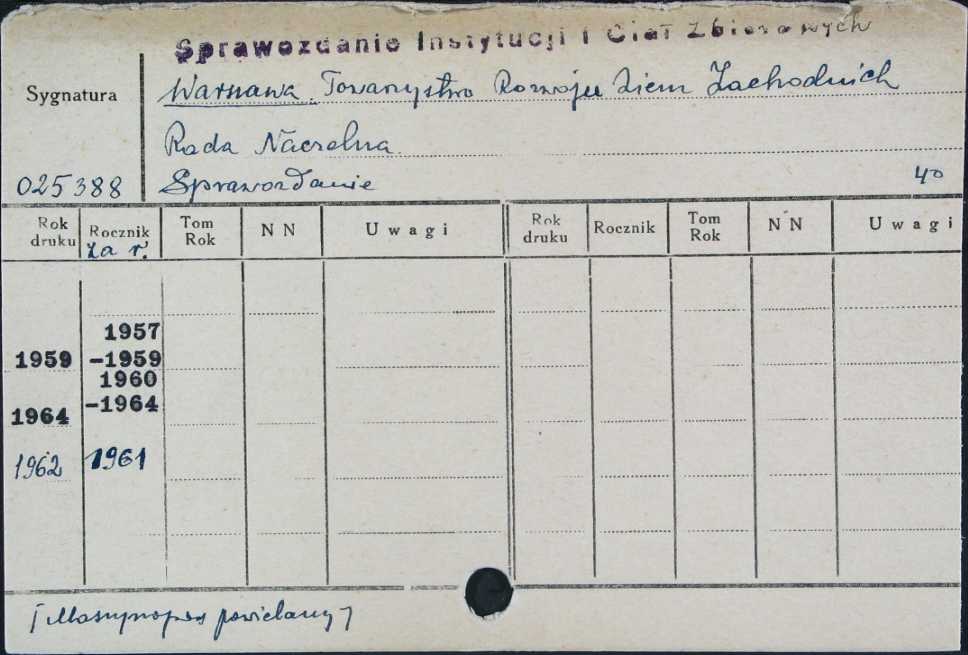 Sprawozdanie Instytucji i Ciał Zbiorowych
Sygnatura
Warszawa. Towarzystwo Rozwoju Ziem Zachodnich
Rada Naczelna.
025388 Sprawozdanie 4°
Rok druku Rocznik za r. Tom Rok N N Uwagi Rok druku Rocznik Tom Rok N N Uwagi
1957
1959 -1959
1960
1964 -1964
1962 1961
[Maszynopis powielany]